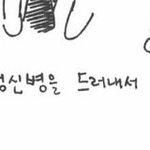 정신병을 드러내서